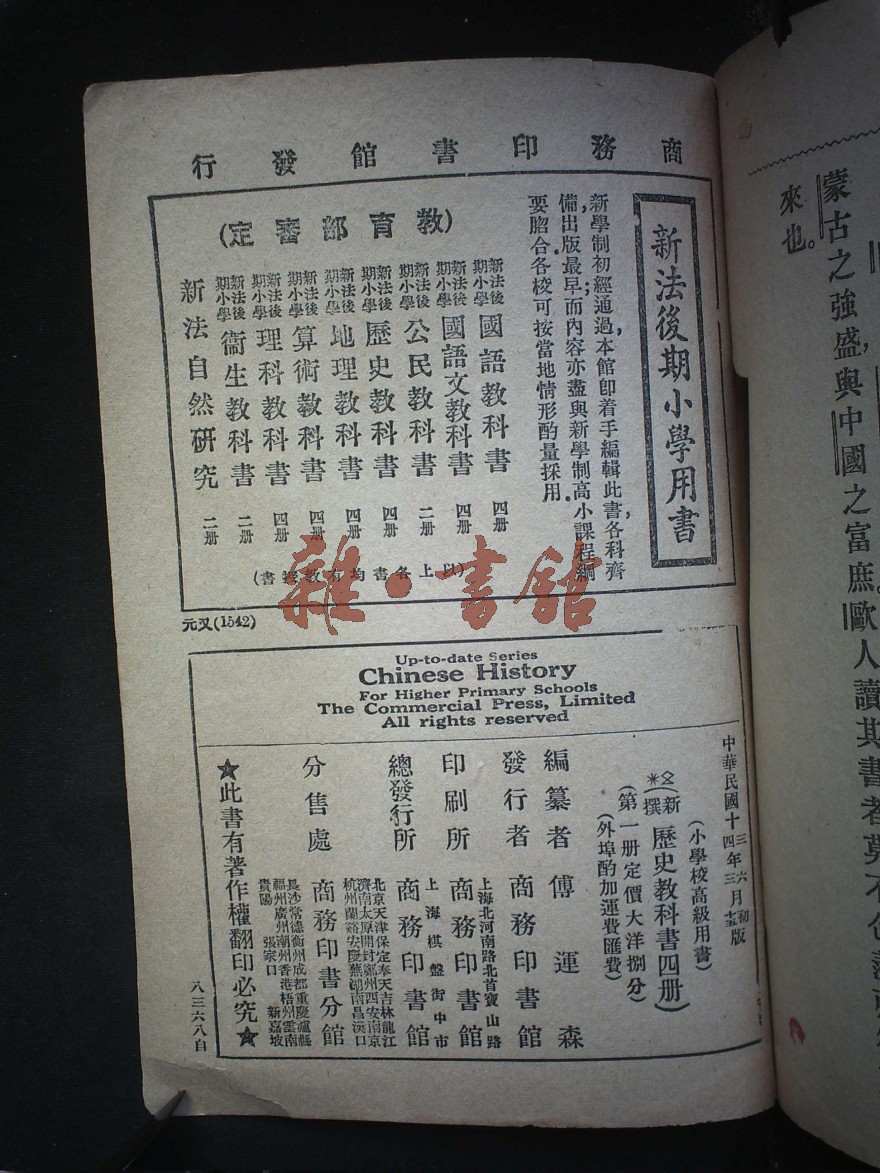 商務印書館發行
新法後期小學用書
新學制初經通過,本館卽着手編輯此書各科齊
備,出版最早;而內容亦盡與新學制高小課程綱
要脗合各校可按當地情形酌量採用.
(教育部審定)
新法後期小學 國語教科書 四册
新法後期小學 國語文教科書 四册
新法後期小學 公民教科書 二册
新法後期小學 歷史教科書 四册
新法後期小學 地理教科書 四册
新法後期小學 算術教科書 四册
新法後期小學 理科教科書 四册
新法後期小學 衞生教科書 二册
新法自然研究 二册
(以上各書均有教授書)
元又(1542)
Up-to-date Series
Chinese History
For Higher Primary Schools
The Commercial Press, Limited
All rights reserved
中華民國十
(小學校高級用書)
(新撰)歷史教科書四册)
(第一册定價大洋捌分)
(外埠酌加運費匯費)
編纂者 傅運森
發行者 商務印書館
上海北河南路北首寶山路
印刷所 商務印書館
上海棋盤街中市
總發行所 商務印書館
北京天津保定奉天吉林龍江
濟南太原開封鄭州西安南京
杭州蘭谿安慶蕪湖南昌漢口
分售處 商務印書分館
長沙常德衡州成都重慶瀘縣
福州廣州潮州香港梧州雲南
貴陽 張家口 新嘉坡
★此書有著作權翻印必究★
八三六八自
雜·書館
蒙古之強盛,與中國之富庶。歐人讀其書者莫不
來也。